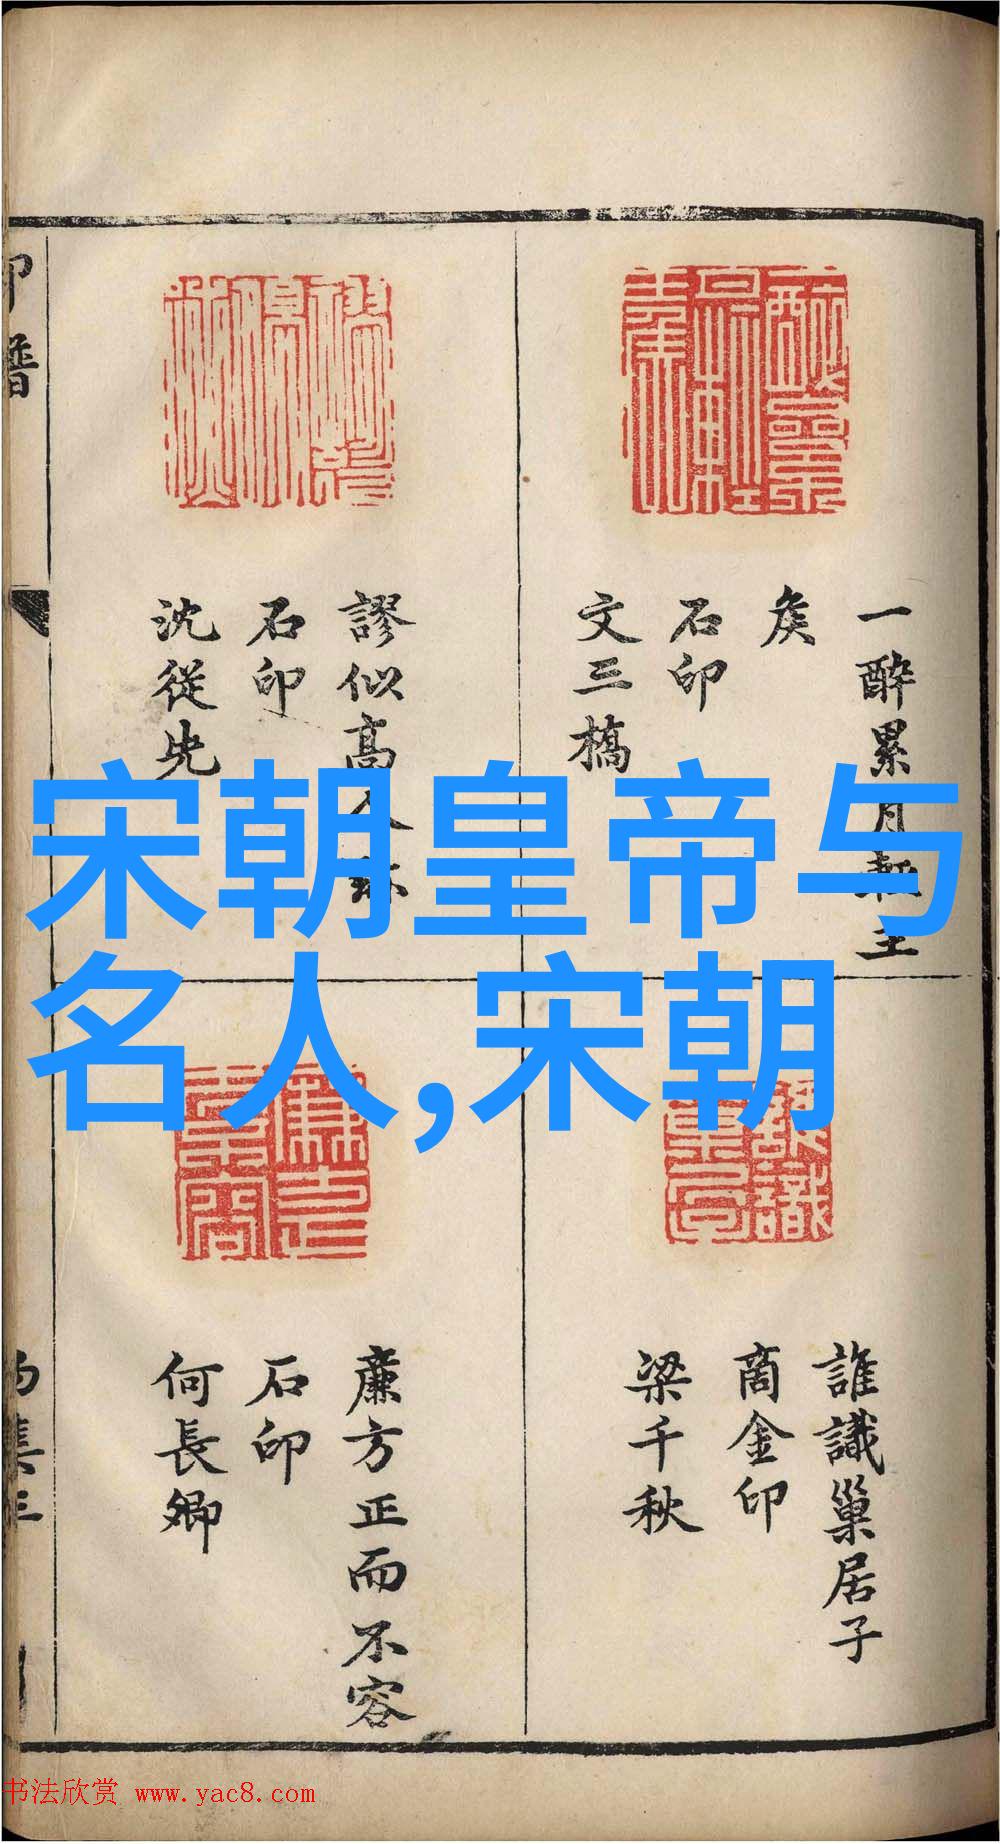 印譜
一醉累月輕王
矦
石印
文三橋
謬似高人琢
石印
沈從先
誰識巢居子
商金印
梁千秋
廉方正而不容
石印
何長卿
宋朝皇帝与
名人,宋朝
书法欣赏 www.yac8.com